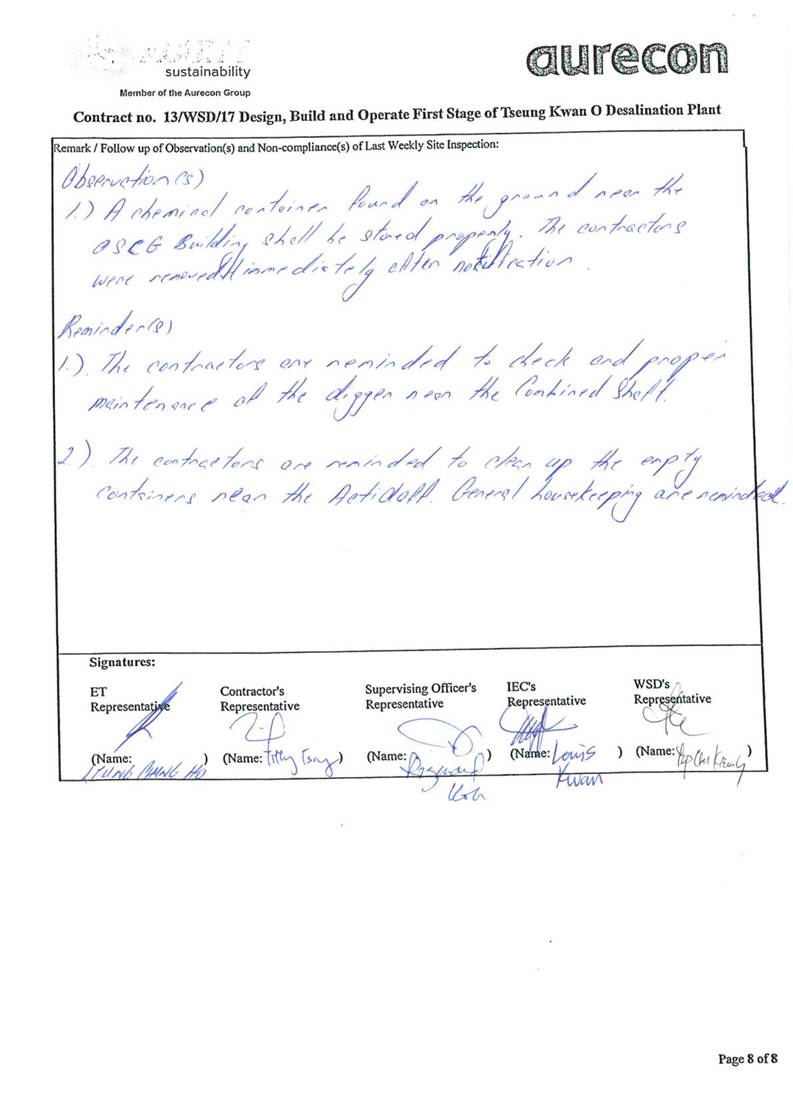 sustainability
aurecon
Member of the Aurecon Group
Contract no. 13/WSD/17 Design, Build and Operate First Stage of Tseung Kwan O Desalination Plant
Remark / Follow up of Observation(s) and Non-compliance(s) of Last Weekly Site Inspection:
Observation(s)
1.) A chemical container found on the ground near the
OSCG Building shall be stored properly. The contractors
were removed it immediately after notification.
Reminder(s)
1.). The contractors are reminded to check and proper
maintenance of the digger near the Combined Shaft.
2.). The contractors are reminded to clean up the empty
containers near the. General housekeeping are reminded.
Signatures:
ET Representative
Contractor's Representative
Supervising Officer's Representative
IEC's Representative
WSD's Representative
(Name: )
(Name: )
(Name: )
(Name: Louis Kwan )
(Name: )
Page 8 of 8